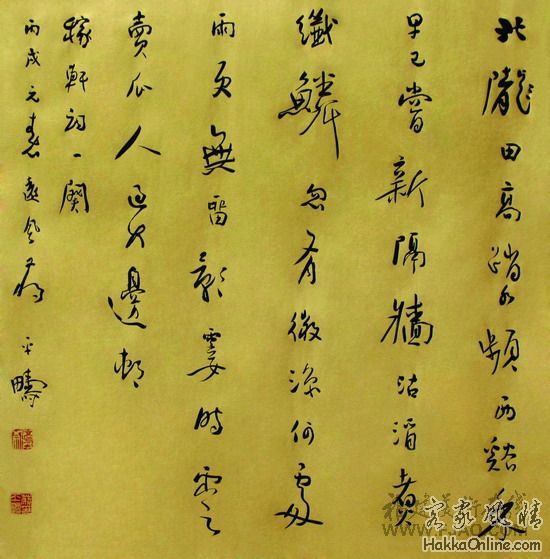 北隴田高踏水頻西谿禾
早已嘗新隔牆沽酒煮
纖鱗忽有微涼何處
雨更無留影霎時雲
賣瓜人過竹邊村
稼軒詞一闋
丙戌元春 平疇
客家風情
HakkaOnline.com